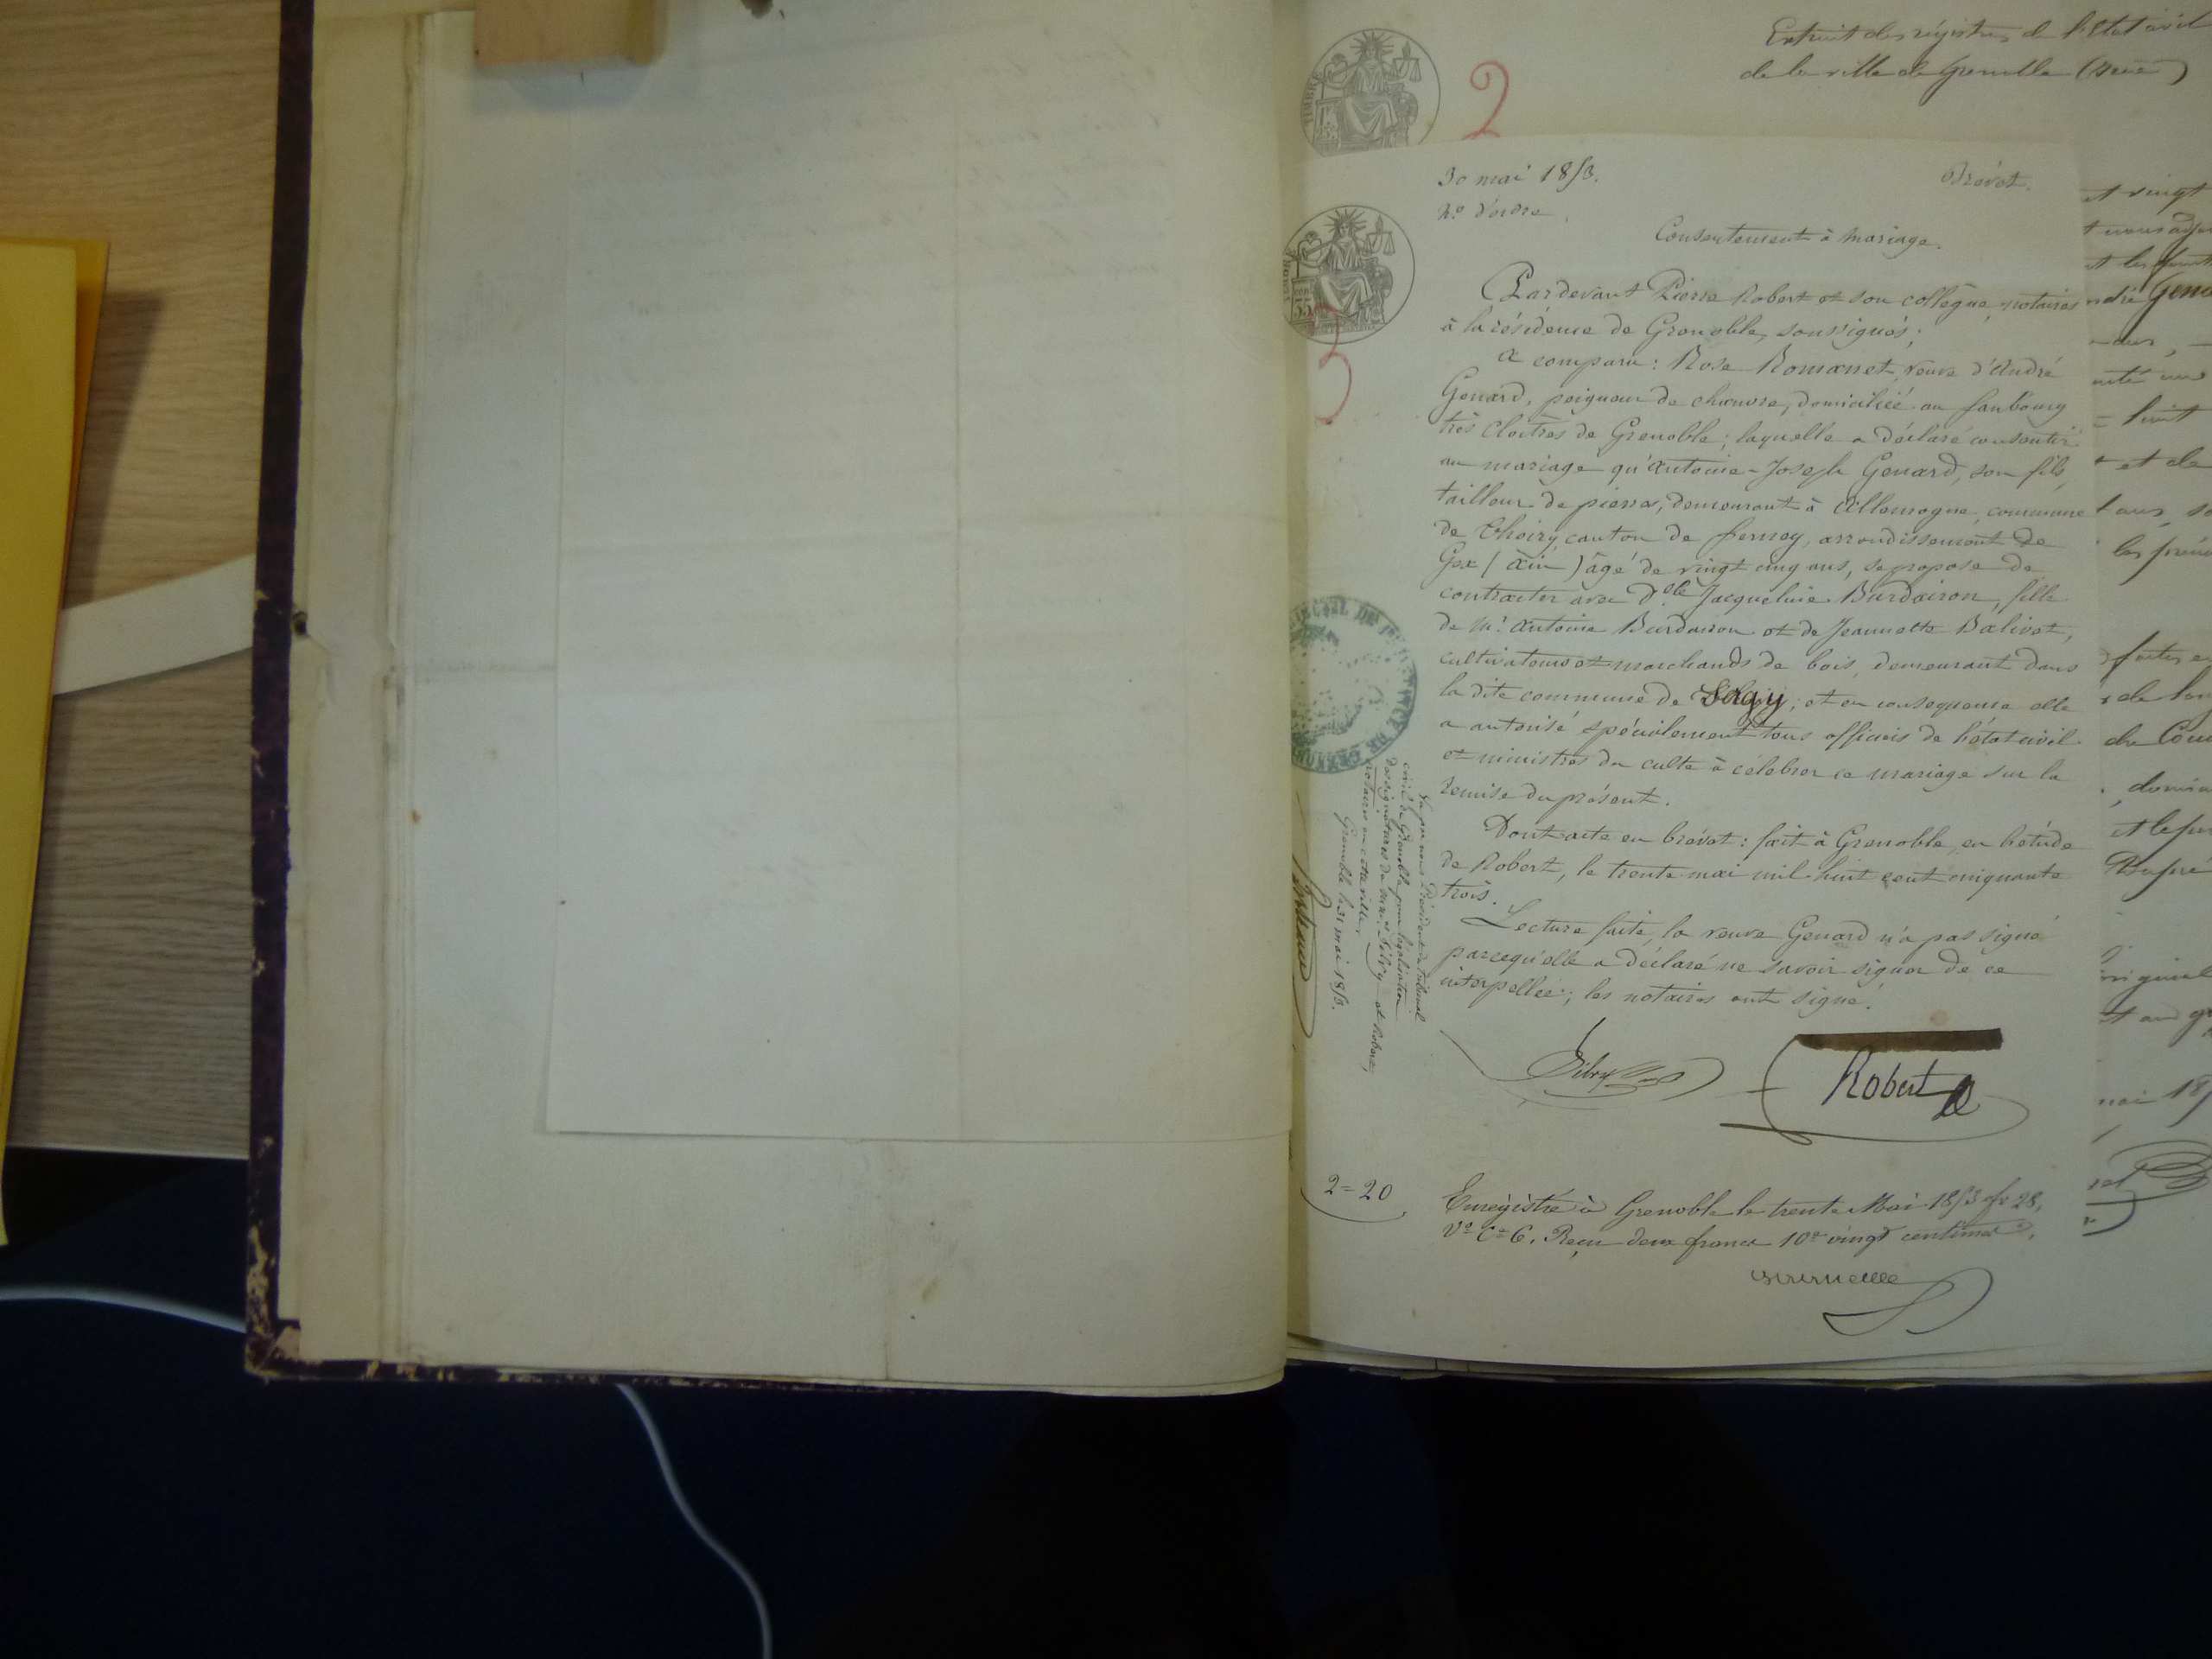 Extrait des régistres de l'Etat civil
de la ville de Grenoble (Isère)
2
TIMBRE
30 mai 1853.
Brevet.
No. d'ordre.
Consentement à mariage.
TIMBRE
3
Pardevant Pierre Robert et son collègue, notaires
à la résidence de Grenoble, soussignés;
a comparu: Rose Romanet, veuve d'André
Genard, peigneur de chanvre, domiciliée au faubourg
très Cloîtres de Grenoble; laquelle a déclaré consentir
au mariage qu'Antoine-Joseph Genard, son fils,
tailleur de pierres, demeurant à Allemogne, commune
de Thoiry, canton de Ferney, arrondissement de
Gex (Ain) âgé de vingt cinq ans, se propose de
contracter avec Dlle Jacqueline Burdairon, fille
de Mr. Antoine Burdairon et de Jeannette Balivet,
cultivateurs et marchands de bois, demeurant dans
la dite commune de Sergy; et en conséquence elle
a autorisé spécialement tous officiers de l'état civil
et ministres du culte à célébrer ce mariage sur la
remise du présent.
Dont acte en brevet: fait à Grenoble, en l'étude
de Robert, le trente mai mil huit cent cinquante
trois.
Lecture faite, la veuve Genard n'a pas signé
parcequ'elle a déclaré ne savoir signer de ce
interpellée; les notaires ont signé.
Silvy
Robert
Vu par nous Président du tribunal
civil de Grenoble pour légalisation
des signatures de Mes Silvy et Robert,
notaires en cette ville.
Grenoble le 31 mai 1853.
2=20
Enregistré à Grenoble le trente Mai 1853 fo 28,
Vo Ce 6. Reçu deux francs 10e vingt centimes.
et vingt
et les
André Gena
huit
et et de
ans
de
du
original
mai 18